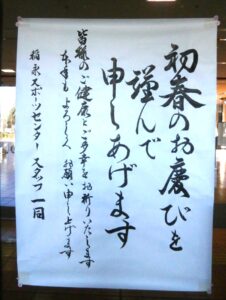 初春のお慶びを
謹んで
申しあげます
皆様のご健康とご多幸をお祈りいたします
本年もよろしくお願い申し上げます
稲永スポーツセンター スタッフ一同